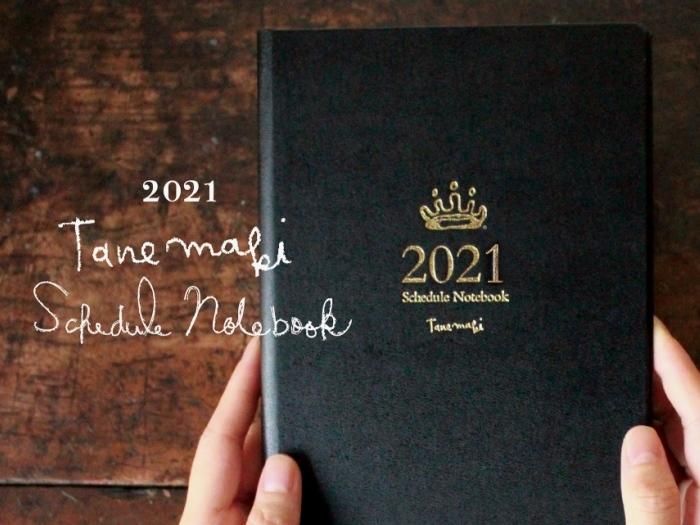 2021
Tanemaki
Schedule Notebook
2021
Schedule Notebook
Tanemaki